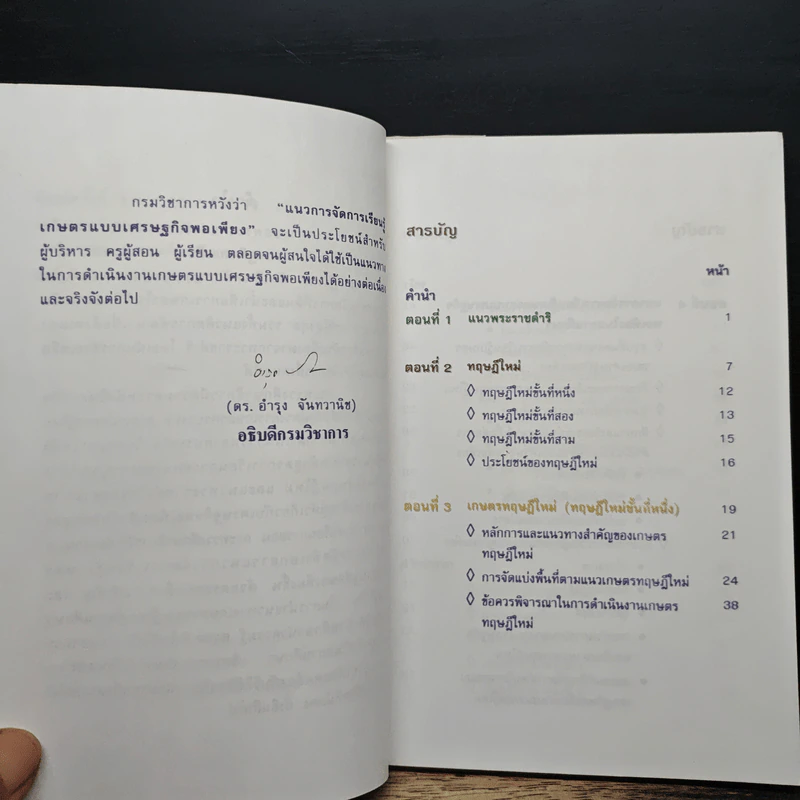 กรมวิชาการหวังว่า "แนวการจัดการเรียนรู้
เกษตรแบบเศรษฐกิจพอเพียง" จะเป็นประโยชน์สำหรับ
ผู้บริหาร ครูผู้สอน ผู้เรียน ตลอดจนผู้สนใจได้ใช้เป็นแนวทาง
ในการดำเนินงานเกษตรแบบเศรษฐกิจพอเพียงได้อย่างต่อเนื่อง
และจริงจังต่อไป
(ดร. อำรุง จันทวานิช)
อธิบดีกรมวิชาการ
สารบัญ
หน้า
คำนำ
ตอนที่ 1 แนวพระราชดำริ 1
ตอนที่ 2 ทฤษฎีใหม่ 7
◊ ทฤษฎีใหม่ขั้นที่หนึ่ง 12
◊ ทฤษฎีใหม่ขั้นที่สอง 13
◊ ทฤษฎีใหม่ขั้นที่สาม 15
◊ ประโยชน์ของทฤษฎีใหม่ 16
ตอนที่ 3 เกษตรทฤษฎีใหม่ (ทฤษฎีใหม่ขั้นที่หนึ่ง) 19
◊ หลักการและแนวทางสำคัญของเกษตร 21
ทฤษฎีใหม่
◊ การจัดแบ่งพื้นที่ตามแนวเกษตรทฤษฎีใหม่ 24
◊ ข้อควรพิจารณาในการดำเนินงานเกษตร 38
ทฤษฎีใหม่